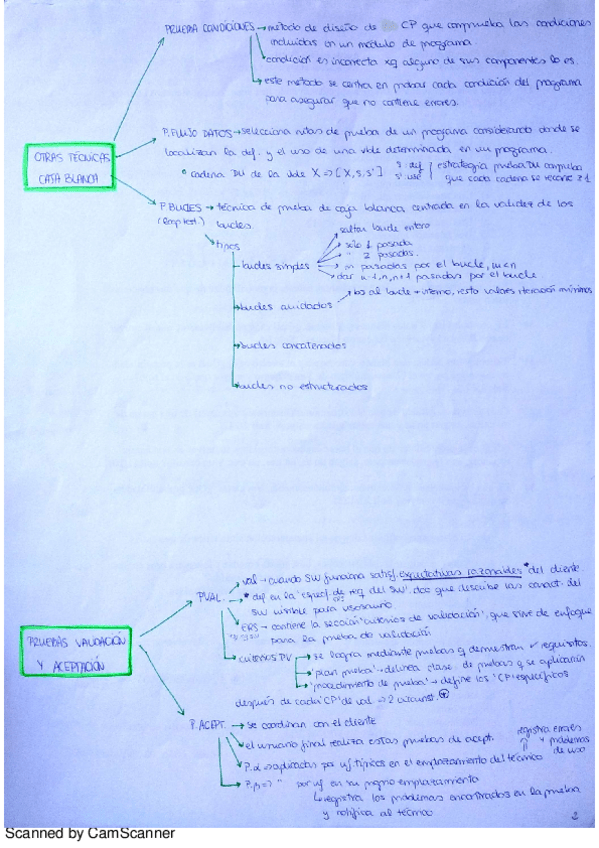 PRUEBA CONDICIONES → método de diseño de CP que comprueba las condiciones
incluidas en un módulo de programa.
condición es incorrecta xq alguno de sus componentes lo es.
este método se centra en probar cada condición del programa
para asegurar que no contiene errores.
OTRAS TÉCNICAS
CAJA BLANCA
P. FLUJO DATOS → selecciona rutas de prueba de un programa considerando donde se
localizan la def. y el uso de una vble determinada en un programa.
cadena DU de la vble X => [X, S, S'] S: def S': use estrategia prueba DU comprueba
que cada cadena se recorre ≥ 1
P. BUCLES → técnica de prueba de caja blanca centrada en la validez de los
(loop test.) bucles
tipos
bucles simples
saltar bucle entero
sólo 1 pasada
" 2 pasadas.
m pasadas por el bucle, m<n
dar n-1, n, n+1 pasadas por el bucle
bucles anidados → bs al bucle + interno, resto valores iteración mínimos
bucles concatenados
bucles no estructurados
PRUEBAS VALIDACIÓN
Y ACEPTACIÓN
P.VAL.
val → cuando SW funciona satisf. expectativas razonables * del cliente.
* def en la 'especif. de req del SW', doc que describe las caract. del
SW visible para usuario
ERS → contiene la sección 'criterios de validación', que sirve de enfoque
para la prueba de validación
criterios PV
se logra mediante pruebas q demuestran ✓ requisitos.
'plan prueba' → delinea clase de pruebas q se aplicarán
'procedimiento de prueba' → define los 'CP' específicos
después de cada 'CP' de val. → 2 circunst. ⊕
P. ACEPT.
se coordinan con el cliente
el usuario final realiza estas pruebas de acept.
registra errores
y problemas
de uso
P. α → aplicadas por uf típicos en el emplazamiento del técnico
P. β => " por uf en su propio emplazamiento
registra los problemas encontrados en la prueba
y notifica al técnico
2
Scanned by CamScanner